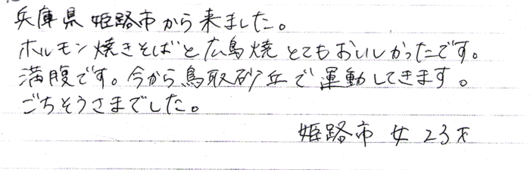 兵庫県姫路市から来ました。
ホルモン焼きそばと広島焼とてもおいしかったです。
満腹です。今から鳥取砂丘で運動してきます。
ごちそうさまでした。
姫路市 女 23才